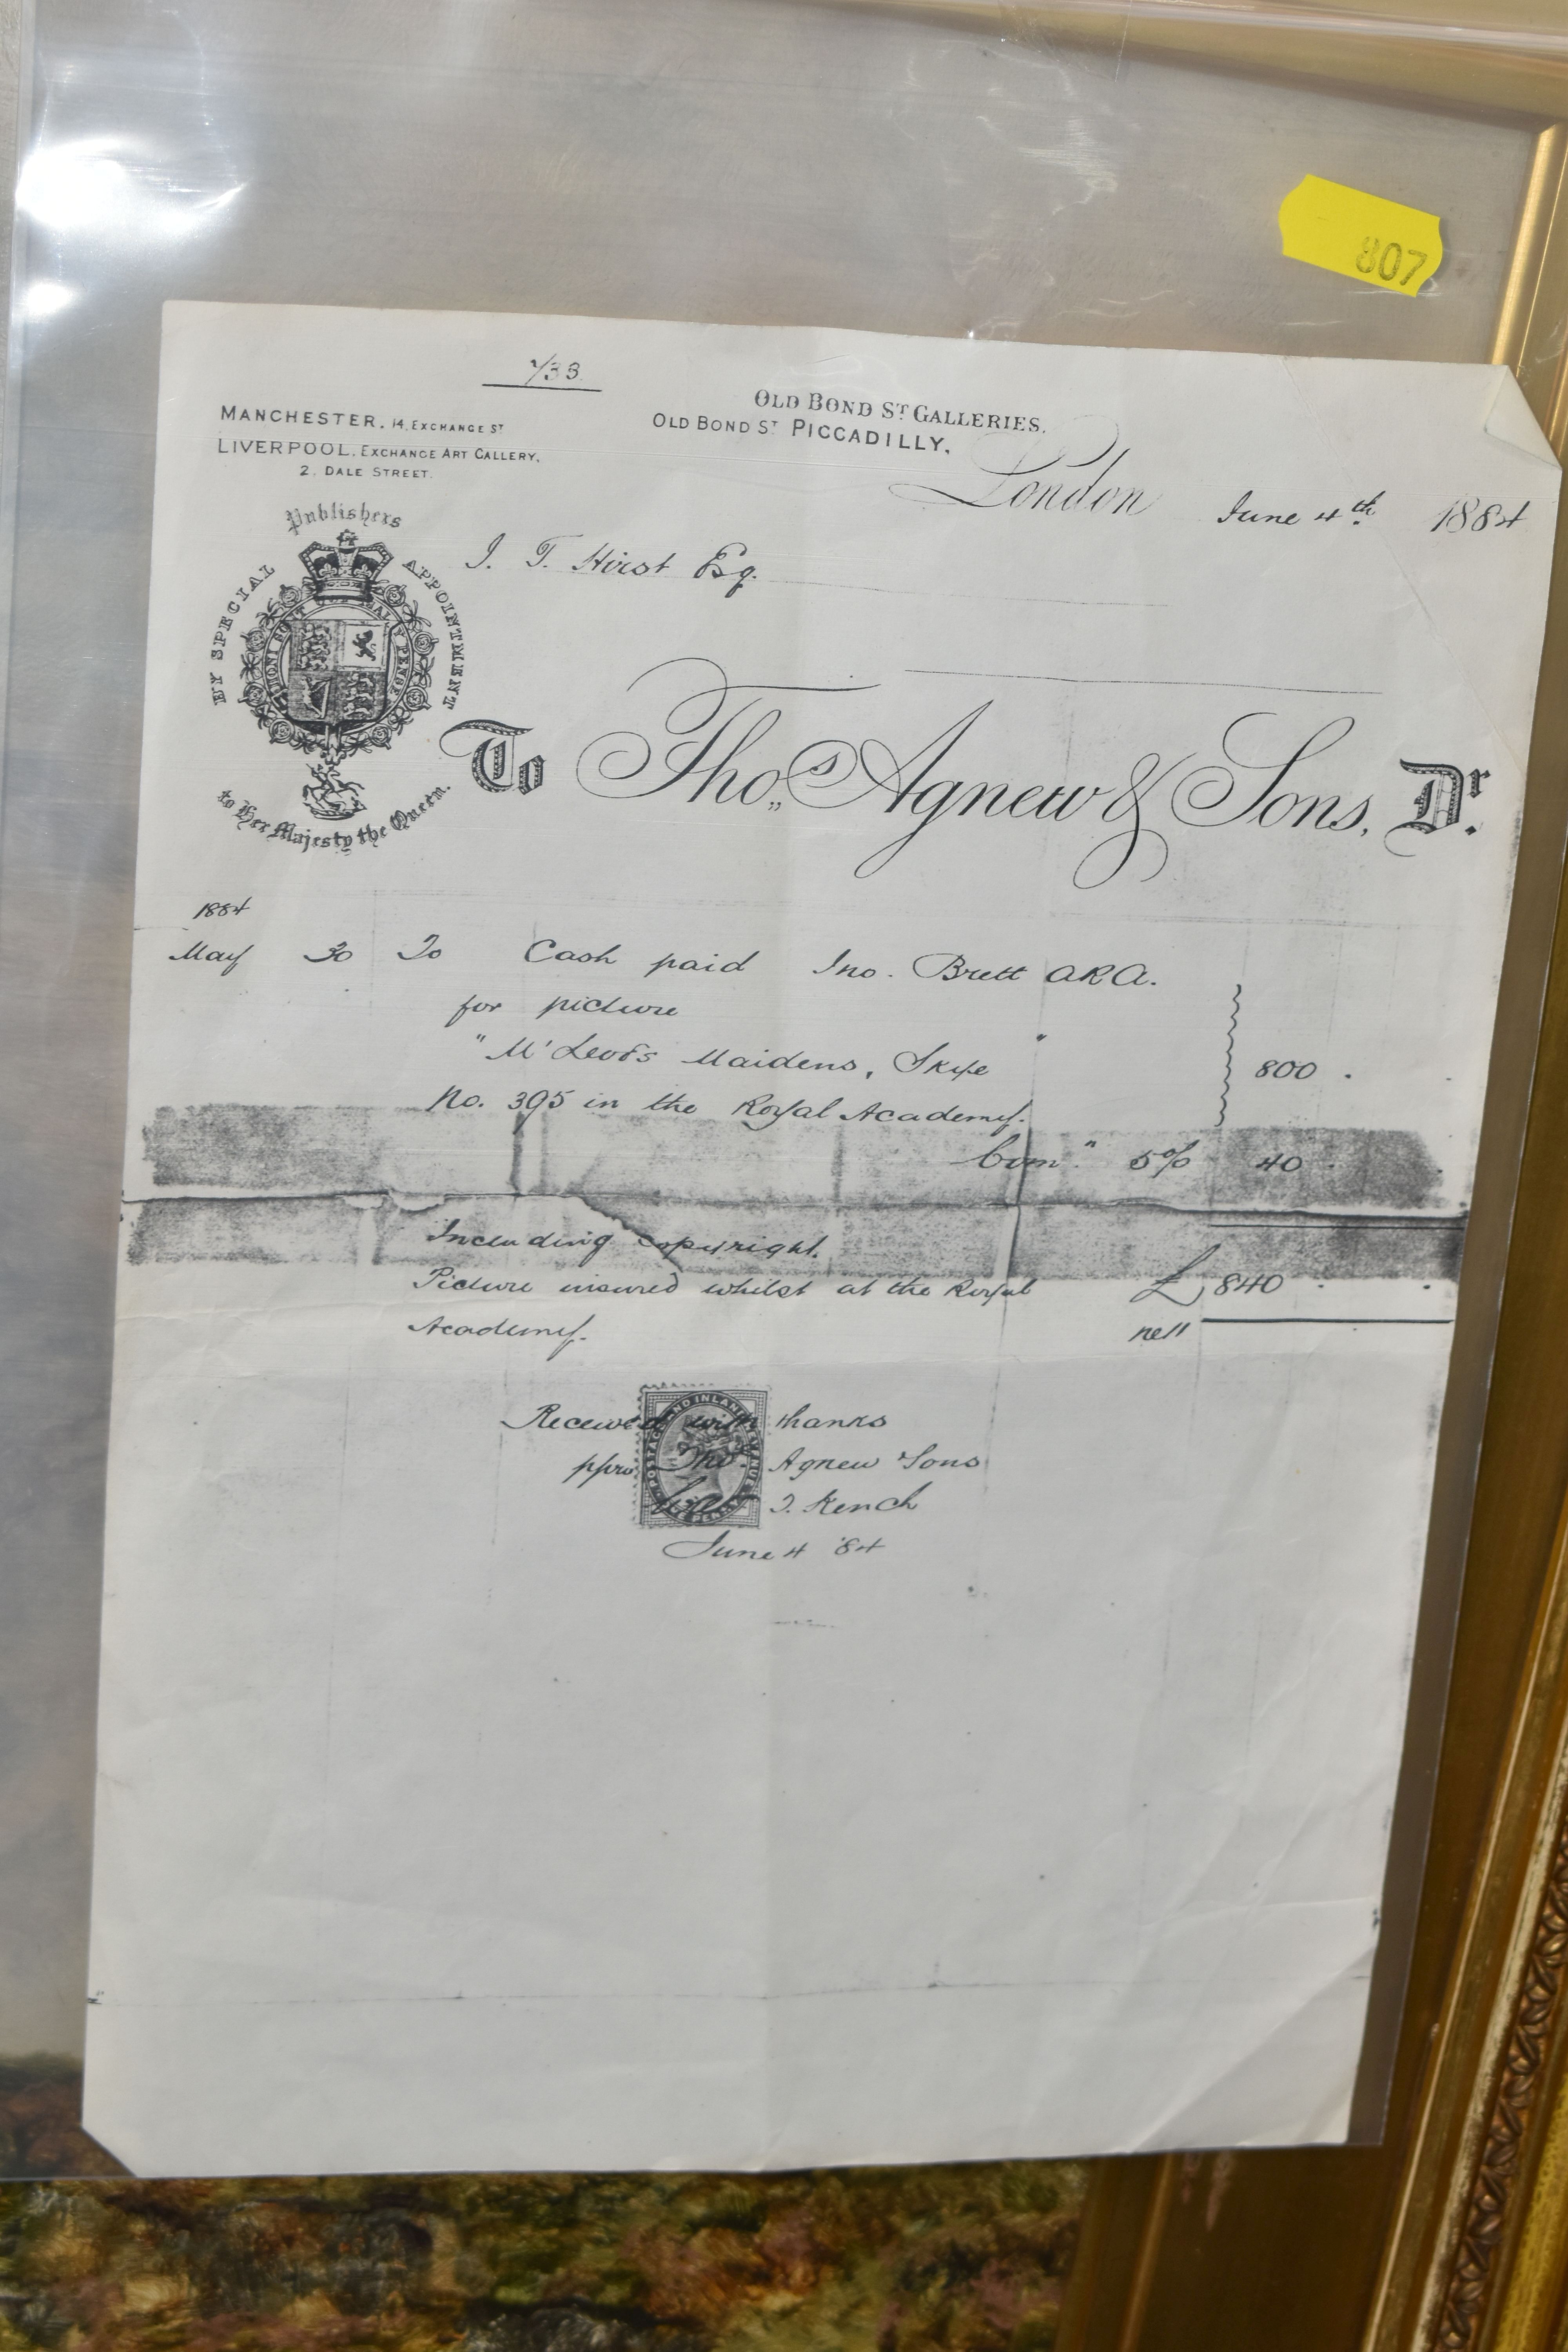 807
1/33
MANCHESTER. 14, EXCHANGE ST
LIVERPOOL, EXCHANGE ART GALLERY,
2, DALE STREET.
OLD BOND ST GALLERIES.
OLD BOND ST PICCADILLY,
London June 4th 1884
Publishers
BY SPECIAL APPOINTMENT
to Her Majesty the Queen.
J. T. Hirst Esq.
To Thos. Agnew & Sons, Dr.
1884
May 30 To Cash paid Jno. Brett ARA.
for picture
"M'Leods Maidens, Skye"
800
No. 395 in the Royal Academy.
Com:n 5% 40
Including copyright.
Picture insured whilst at the Royal £840
Academy. nett
Received with thanks
ppro Thos. Agnew Sons
T. Kench
June 4 '84